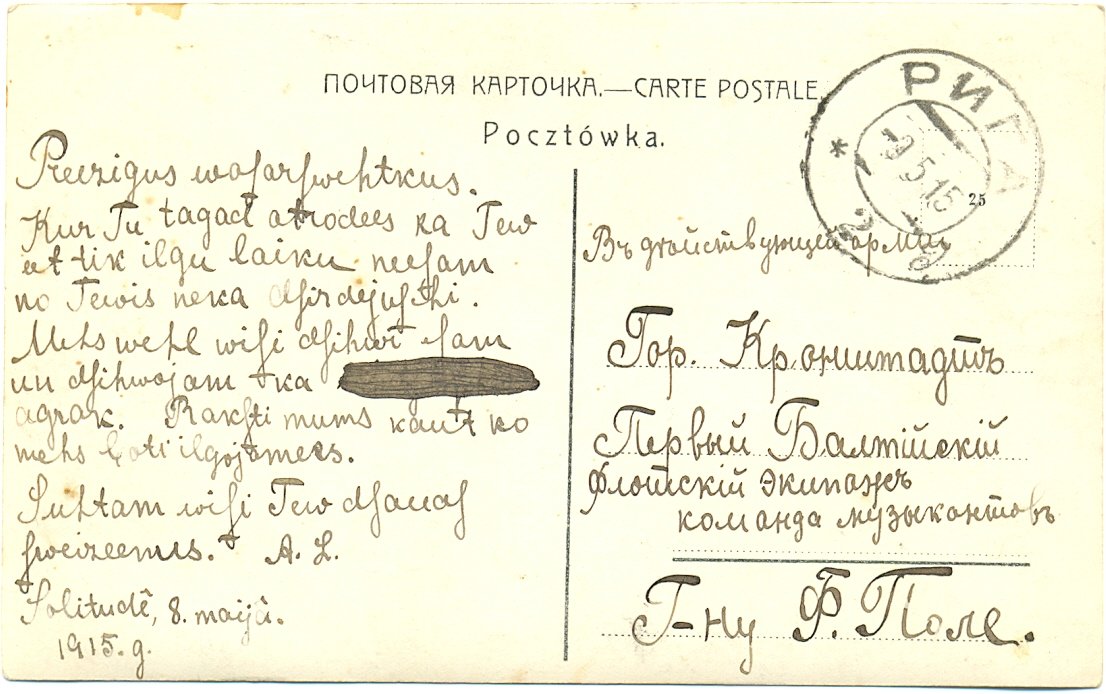 ПОЧТОВАЯ КАРТОЧКА.—CARTE POSTALE.
Pocztówka.
РИГА
9 5 15
25
Preezigus wasarswehtkus.
Kur Tu tagad atrodees ka Tew
et tik ilgu laiku neesam
no Tewis neka dsirdejuschi.
Mehs wehl wisi dsihwi esam
un dsihwojam ka
agrak. Raksti mums kaut ko
mehs ļoti ilgojamees.
Suhtam wisi Tew dsauas
sweizeenus. A. L.
Solitudê, 8. maijâ.
1915. g.
Въ дѣйствующей армiи
Гор. Кронштадтъ
Первый Балтiйскiй
флотскiй экипажъ
команда музыкантовъ
Г-ну Ф. Поле.